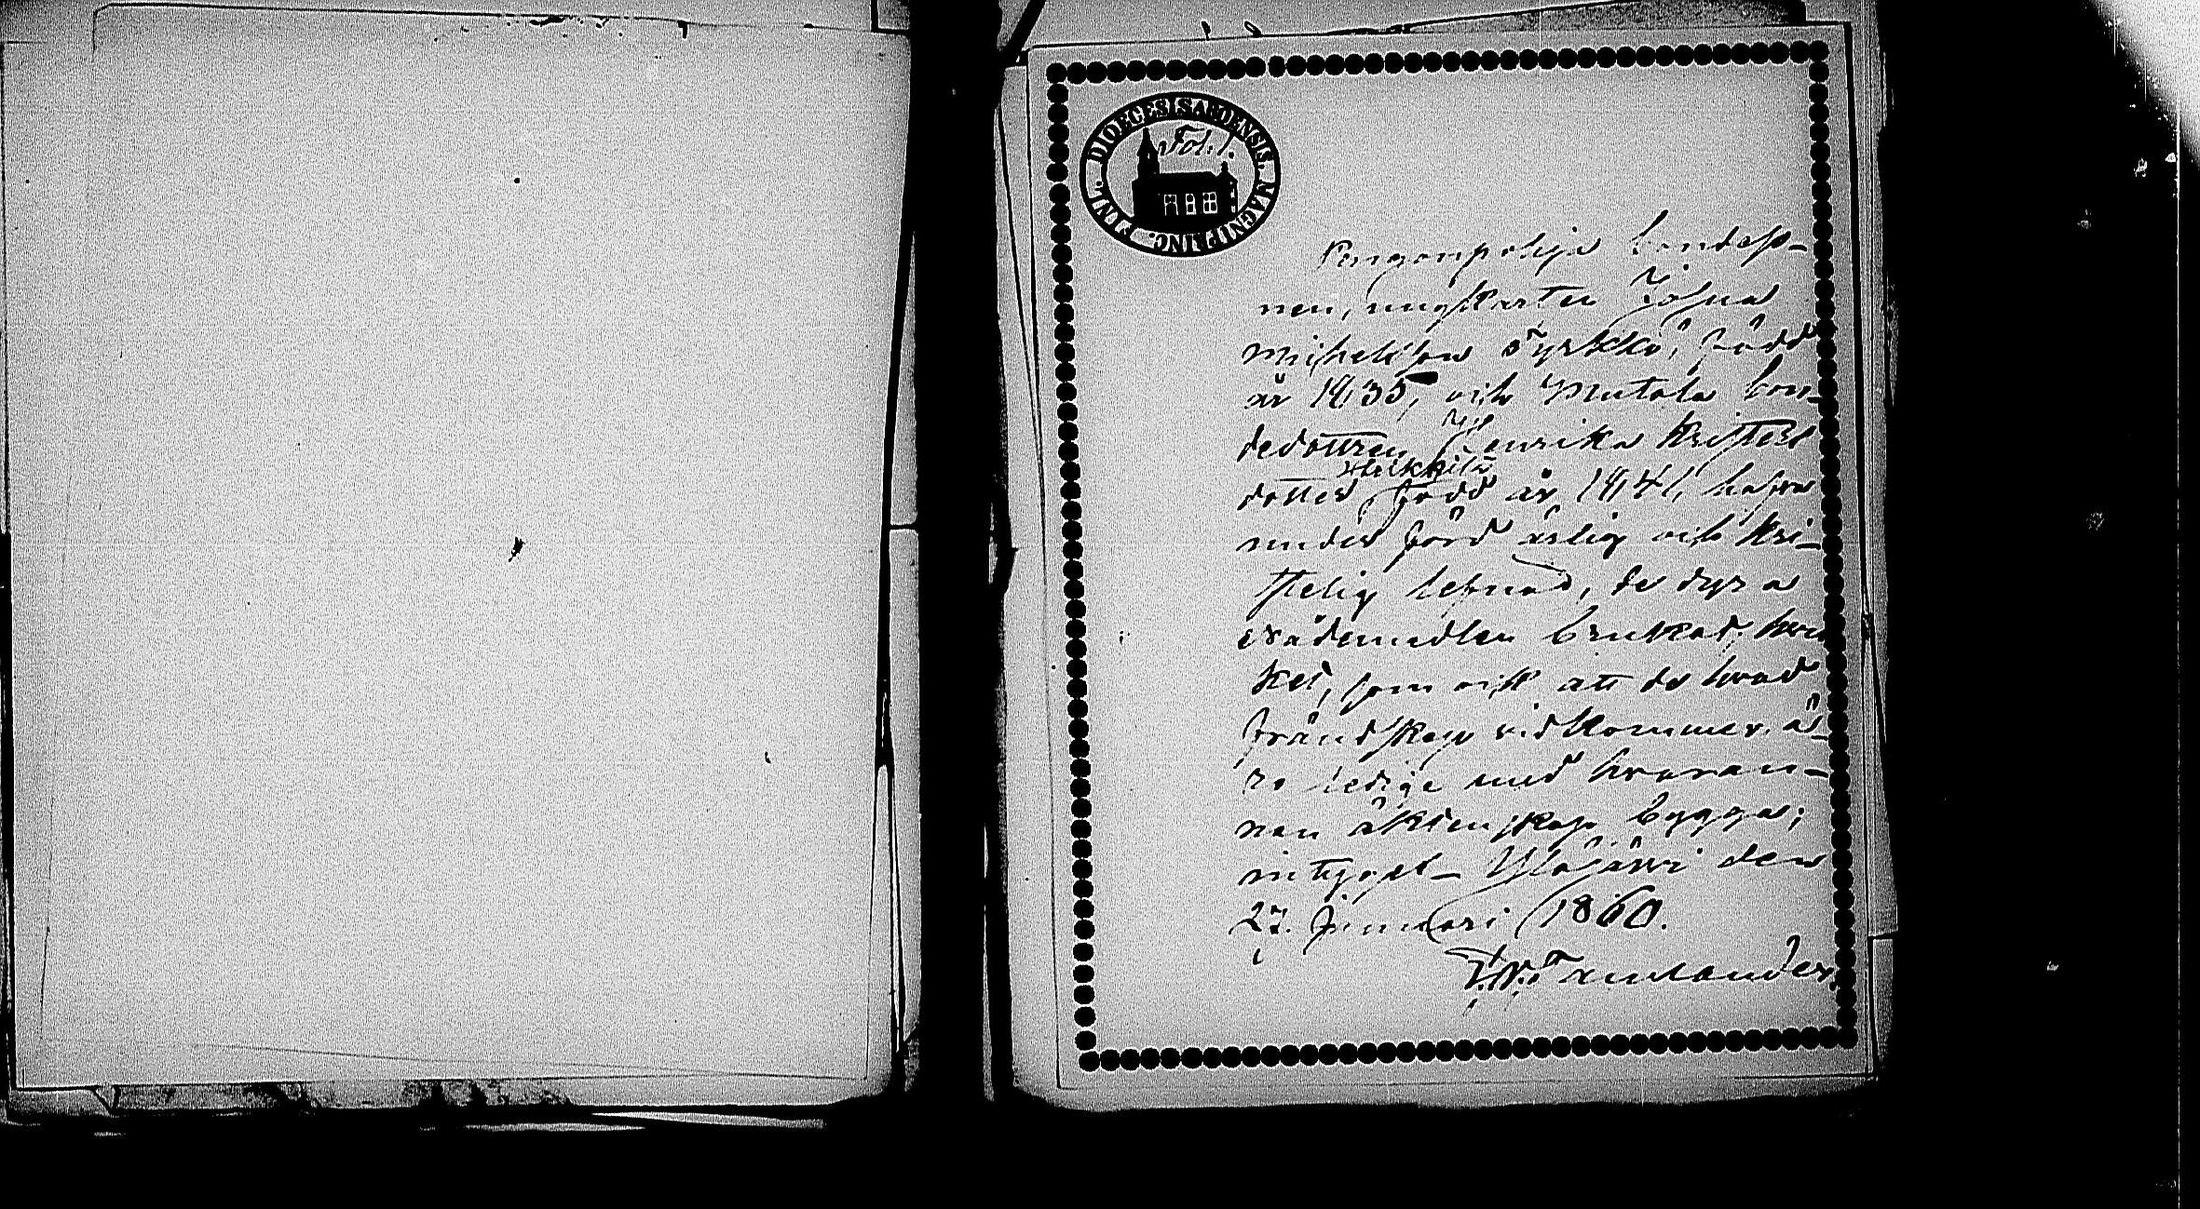 DIOECESIS ABOENSIS. MAGNI PRINC. FINL.
Fol. 1.
Pengonpohja bondeso-
nen, ungkarlen Johan
Michelsson Syrkkö, född
år 1835, och Mutala bon-
dedottren Henrika Kristers
Heikkilä
dotter, född år 1841, hafva
under förd ärlig och kri-
stelig lefnad, de dyra
nådemedlen brukat,
ket, som ock att de hvad
frändskap vidkommer, ä-
ro ledige med hvaran-
nan äktenskap bygga;
intygat Ylöjärvi den
27. Januari 1860.